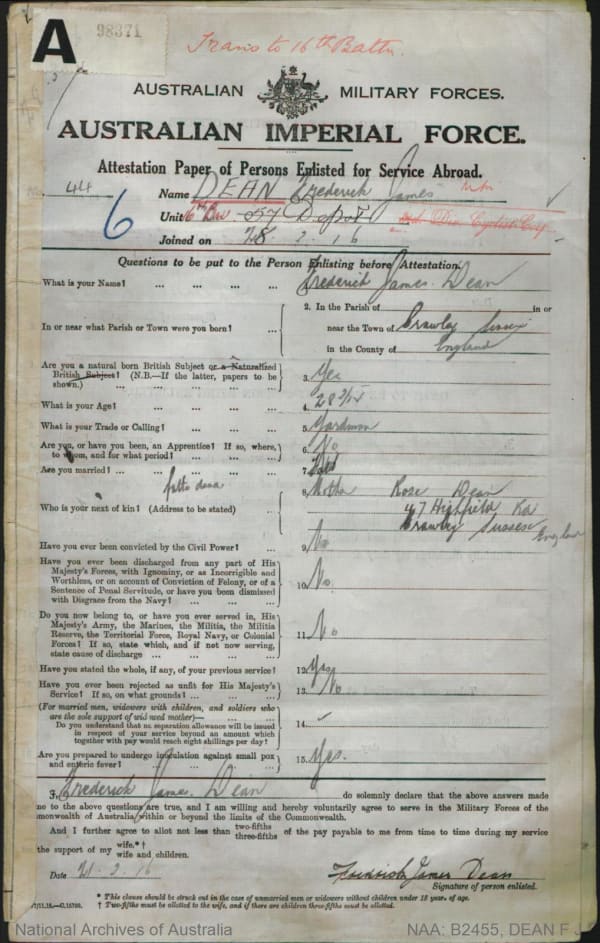 A
98371
Trans to 16th Battn.
AUSTRALIAN MILITARY FORCES.
AUSTRALIAN IMPERIAL FORCE.
Attestation Paper of Persons Enlisted for Service Abroad.
44 Name DEAN Frederick James
6 Unit 57 Depot
Joined on 28. 2. 16
Questions to be put to the Person Enlisting before Attestation.
What is your Name? ... ... ... ... Frederick James Dean
2. In the Parish of in or
In or near what Parish or Town were you born? ... near the Town of Crawley Sussex
in the County of England
Are you a natural born British Subject or a Naturalized
British Subject? (N.B.—If the latter, papers to be
shown.) ... ... ... ... 3. Yes
What is your Age? ... ... ... ... 4. 28
What is your Trade or Calling? ... ... ... 5.
Are you, or have you been, an Apprentice? If so, where,
to whom, and for what period? ... ... ... 6. No
Are you married? ... ... ... ... 7.
8. Mother Rose Dean
Who is your next of kin? (Address to be stated) ... 47 Highfield Rd
Crawley Sussex England
Have you ever been convicted by the Civil Power? ... 9. No
Have you ever been discharged from any part of His
Majesty's Forces, with Ignominy, or as Incorrigible and
Worthless, or on account of Conviction of Felony, or of a
Sentence of Penal Servitude, or have you been dismissed
with Disgrace from the Navy? ... ... ... 10. No.
Do you now belong to, or have you ever served in, His
Majesty's Army, the Marines, the Militia, the Militia
Reserve, the Territorial Force, Royal Navy, or Colonial
Forces? If so, state which, and if not now serving,
state cause of discharge ... ... ... 11. No
Have you stated the whole, if any, of your previous service? 12. Yes
Have you ever been rejected as unfit for His Majesty's
Service? If so, on what grounds? ... ... ... 13. No
(For married men, widowers with children, and soldiers who
are the sole support of widowed mother)—
Do you understand that no separation allowance will be issued
in respect of your service beyond an amount which
together with pay would reach eight shillings per day? 14.
Are you prepared to undergo inoculation against small pox
and enteric fever? ... ... ... ... 15. Yes.
I, Frederick James Dean do solemnly declare that the above answers made
me to the above questions are true, and I am willing and hereby voluntarily agree to serve in the Military Forces of the
monwealth of Australia within or beyond the limits of the Commonwealth.
And I further agree to allot not less than two-fifths three-fifths of the pay payable to me from time to time during my service
the support of my wife.*† wife and children.
Date 21. 2. 16 Frederick James Dean
Signature of person enlisted.
* This clause should be struck out in the case of unmarried men or widowers without children under 18 years of age.
† Two-fifths must be allotted to the wife, and if there are children three-fifths must be allotted.
National Archives of Australia NAA: B2455, DEAN F J